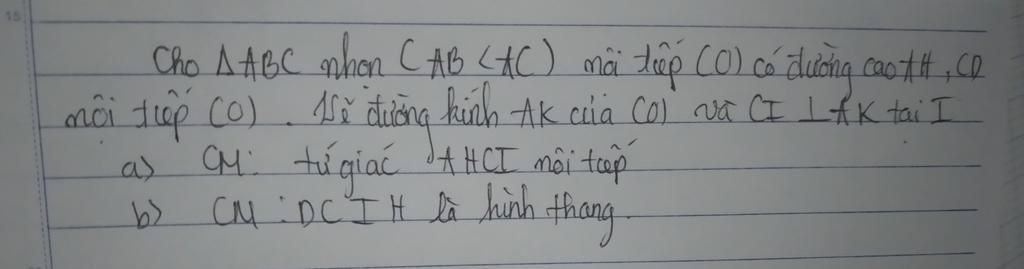 Cho ΔABC nhọn (AB<AC) nội tiếp (O) có đường cao AH, CD
nội tiếp (O). Vẽ đường kính AK của (O) và CI ⊥ AK tại I
a) CM: tứ giác AHCI nội tiếp
b) CM: DCIH là hình thang.